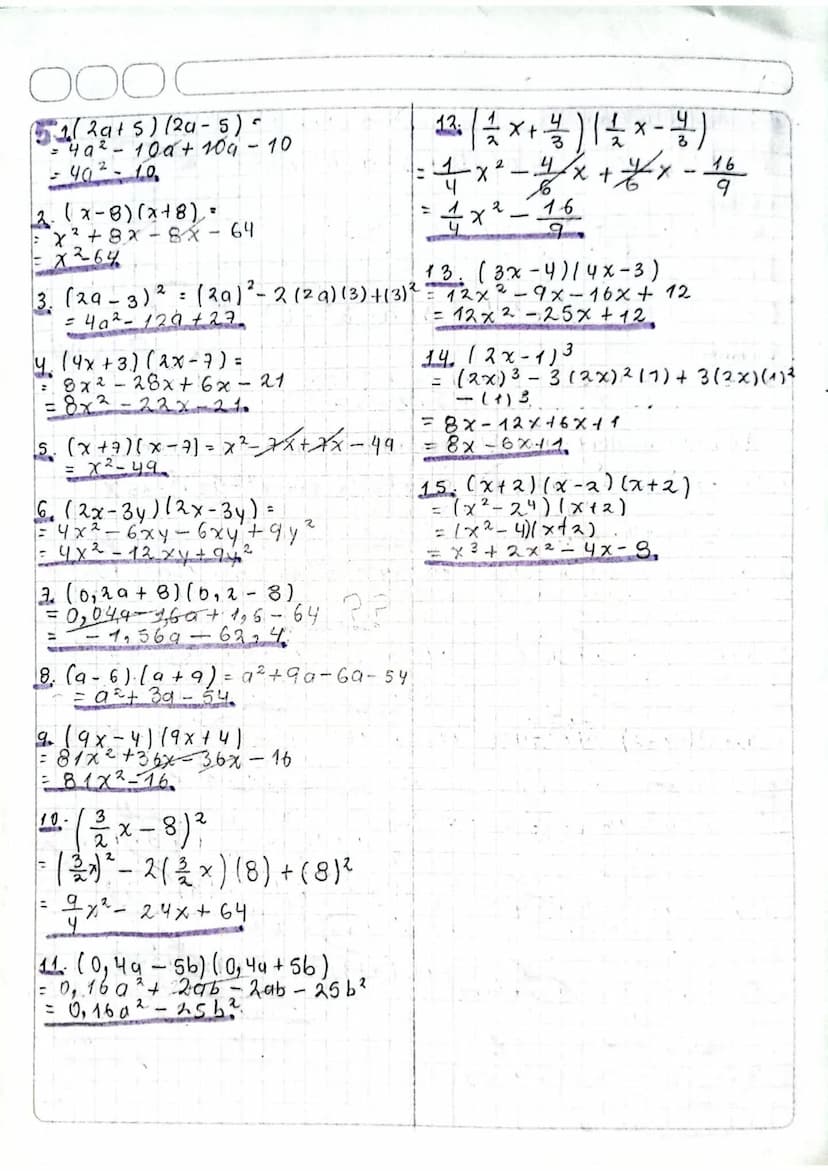 5.1. (2a+5)(2a-5) =
= 4a² - 10a + 10a - 10
= 4a² - 10.
2. (x-8)(x+8) =
= x² + 8x - 8x - 64
= x²-64
3. (2a-3)² = (2a)² - 2(2a)(3)+(3)²
= 4a² - 12a + 27.
4. (4x+3)(2x-7) =
= 8x² - 28x + 6x - 21
= 8x² - 22x - 21.
5. (x+7)(x-7) = x² - 7x + 7x - 49
= x² - 49.
6. (2x-3y)(2x-3y) =
= 4x² - 6xy - 6xy + 9y²
= 4x² - 12xy + 9y²
7. (0,2a + 8)(0,2 - 8)
= 0,04a - 1,6a + 1,6 - 64 ??
= - 1,56a - 62,4.
8. (a-6).(a+9) = a² + 9a - 6a - 54
= a² + 3a - 54.
9. (9x-4)(9x+4)
= 81x² + 36x - 36x - 16
= 81x² - 16.
10. (3/2 x - 8)²
= (3/2 x)² - 2(3/2 x)(8) + (8)²
= 9/4 x² - 24x + 64
11. (0,4a - 5b)(0,4a + 5b)
= 0,16a² + 2ab - 2ab - 25b²
= 0,16a² - 25b².
12. (1/2 x + 4/3)(1/2 x - 4/3)
= 1/4 x² - 4/6 x + 4/6 x - 16/9
= 1/4 x² - 16/9.
13. (3x-4)(4x-3)
= 12x² - 9x - 16x + 12
= 12x² - 25x + 12.
14. (2x-1)³
= (2x)³ - 3(2x)²(1) + 3(2x)(1)²
- (1)³
= 8x - 12x + 6x + 1
= 8x - 6x + 1.
15. (x+2)(x-2)(x+2)
= (x² - 2⁴)(x+2)
= (x² - 4)(x+2)
= x³ + 2x² - 4x - 8.